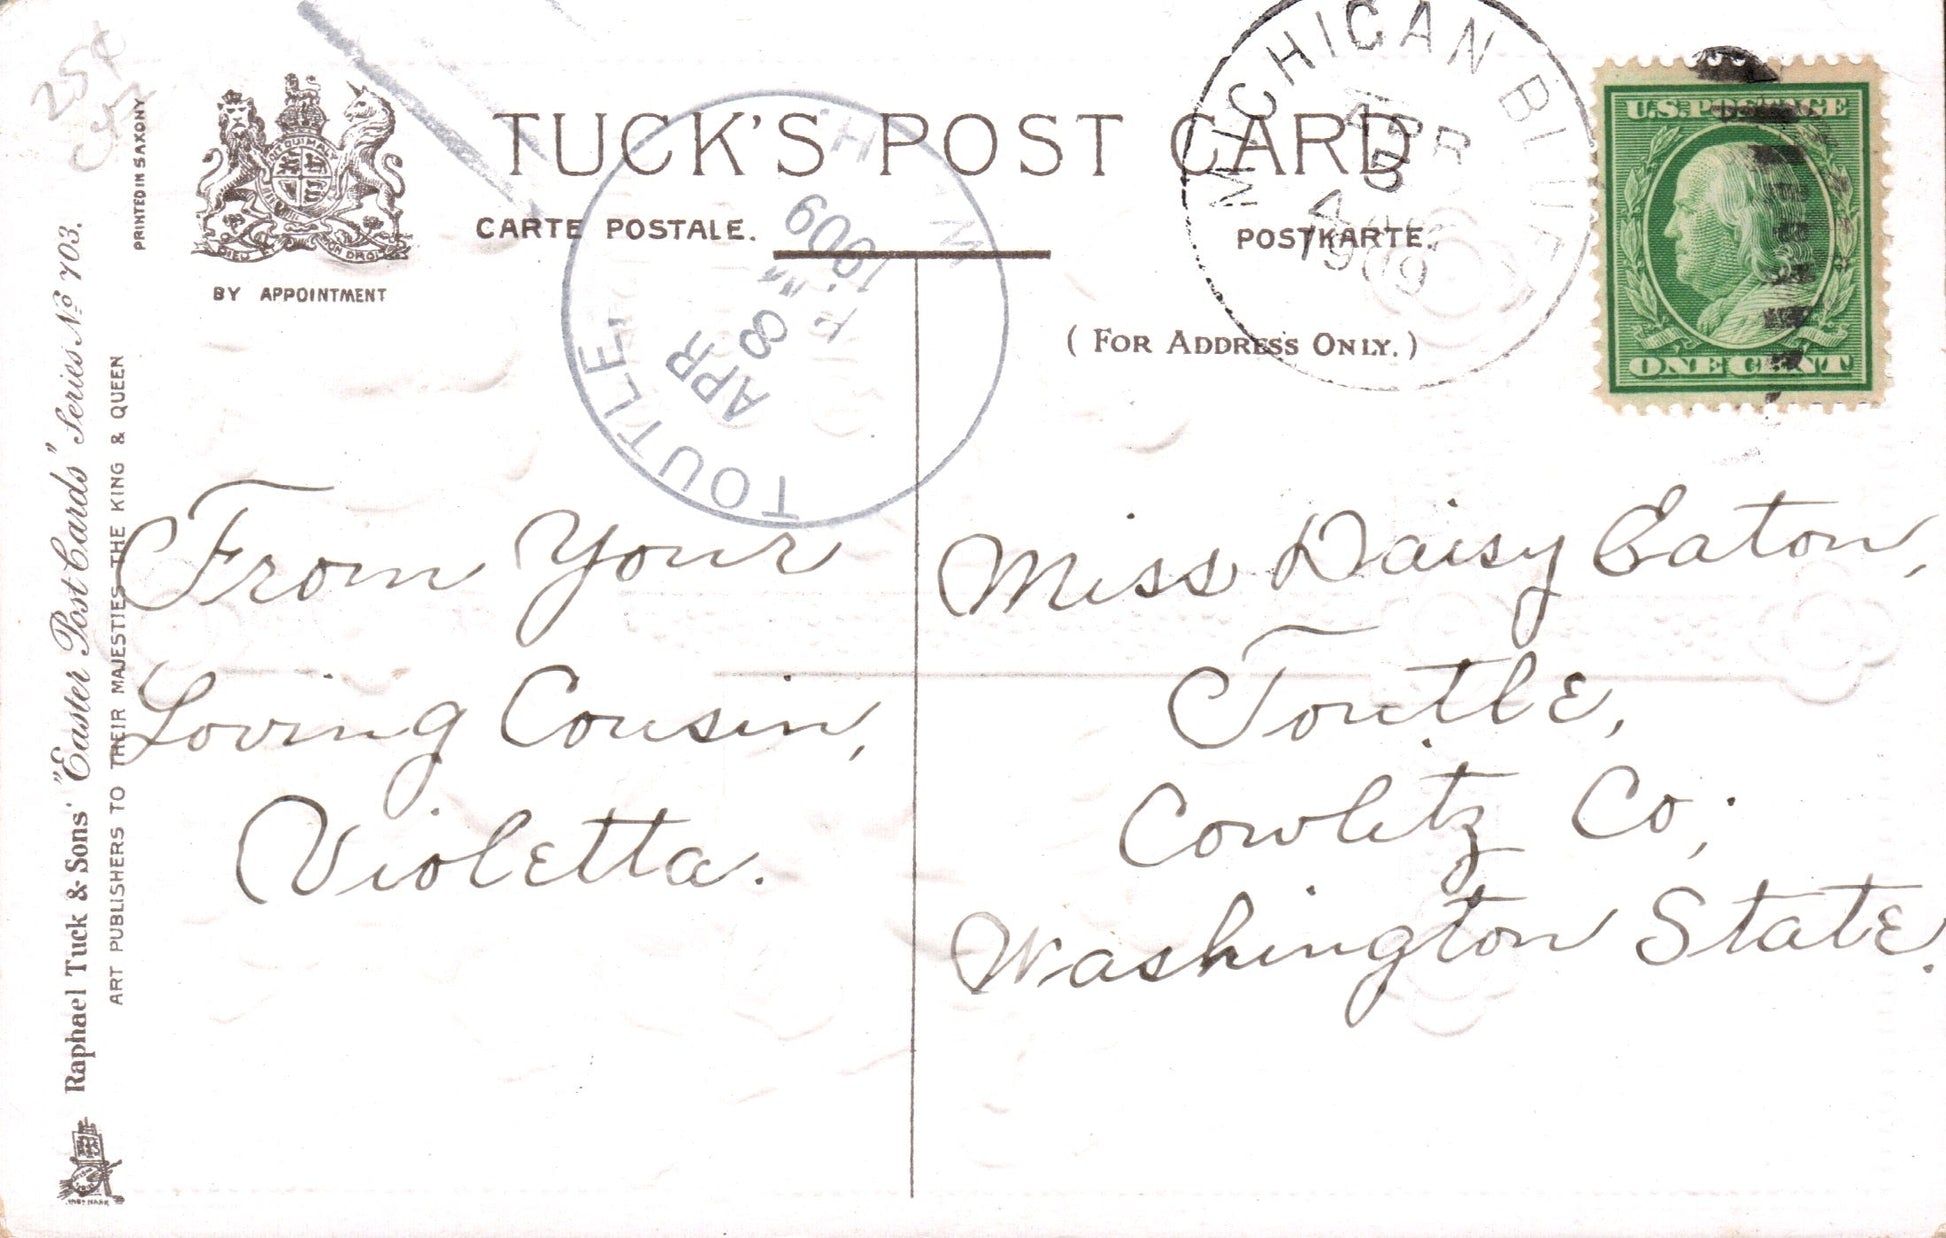 25¢
TUCK'S POST CARD
CARTE POSTALE.
POSTKARTE.
(FOR ADDRESS ONLY.)
BY APPOINTMENT
PRINTED IN SAXONY
Raphael Tuck & Sons' "Easter Post Cards" Series No 703.
ART PUBLISHERS TO THEIR MAJESTIES THE KING & QUEEN
TOUTLE,
APR
8
1909
MICHIGAN BLUFF
APR
3
1909
U.S. POSTAGE
ONE CENT
From Your
Loving Cousin,
Violetta.
Miss Daisy Eaton,
Toutle,
Cowlitz Co;
Washington State.